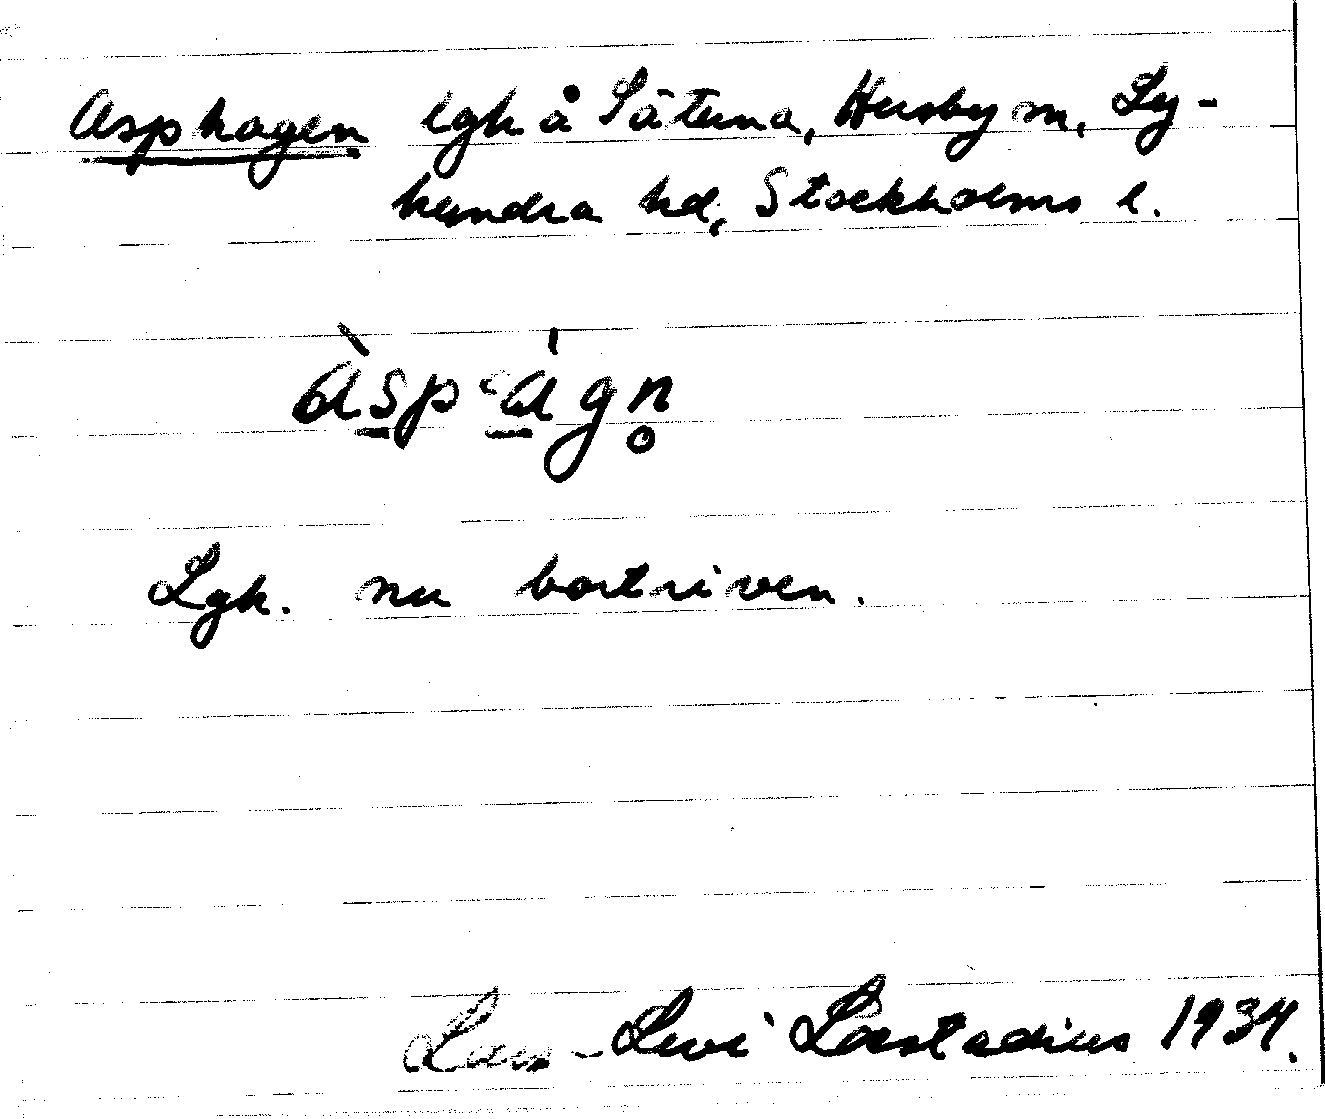 Asphagen lgh å Sätuna, Husby sn, Ly-
hundra hd, Stockholms l.
àsp-ágn̥
Lgh. nu bortriven.
Lars-Levi Læstadius 1934.